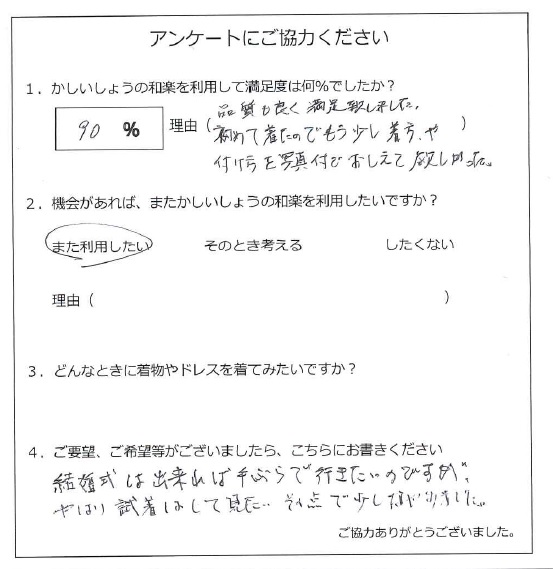 アンケートにご協力ください
1．かしいしょうの和楽を利用して満足度は何%でしたか？
90 %
理由（品質も良く満足致しました。
初めて着たのでもう少し着方、や
付け方を写真付でおしえて欲しかった。）
2．機会があれば、またかしいしょうの和楽を利用したいですか？
また利用したい そのとき考える したくない
理由（ ）
3．どんなときに着物やドレスを着てみたいですか？
4．ご要望、ご希望等がございましたら、こちらにお書きください
結婚式は出来れば手ぶらで行きたいのですが、
やはり試着はして見たい… その点で少し
ご協力ありがとうございました。